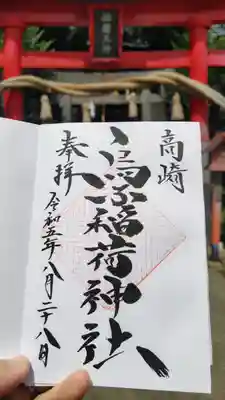 高崎
烏子稲荷神社
奉拝
令和五年八月二十八日